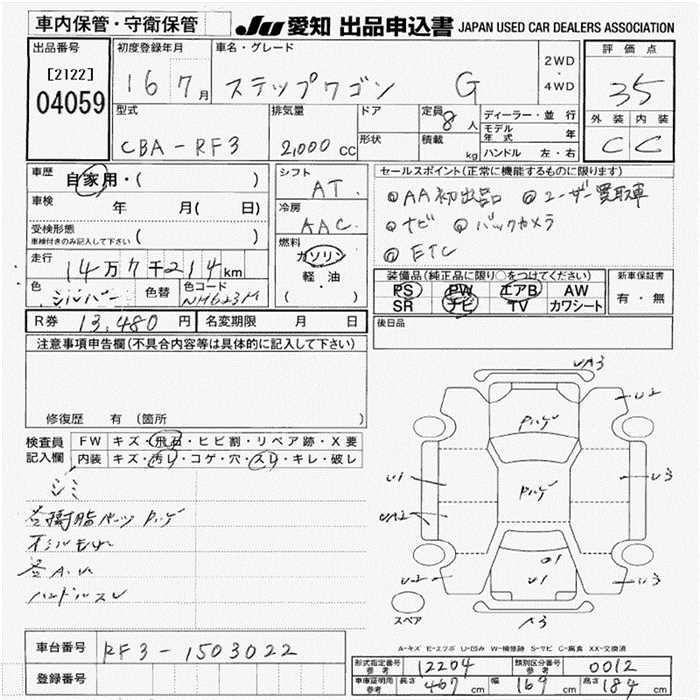 車内保管・守衛保管
JU 愛知 出品申込書 JAPAN USED CAR DEALERS ASSOCIATION
出品番号
[2122]
04059
初度登録年月
16 7月
車名・グレード
ステップワゴン G
2WD
・
4WD
評価点
35
外装 内装
C C
型式
CBA-RF3
排気量
2,000 cc
ドア
形状
定員 8人
積載 kg
ディーラー・並行
モデル年式 年
ハンドル 左・右
車歴 自家用・( )
車検 年 月( 日)
受検形態
車検付きのみ記入して下さい ( )
走行 14万7千214km
色 シルバー 色替 色コード NH623M
シフト
AT.
冷房
AAC.
燃料
ガソリン
軽・油
( )
セールスポイント(正常に機能するものに限ります)
◎AA初出品 ◎ユーザー買取車
◎ナビ ◎バックカメラ
◎ETC
装備品(純正品に限り○をつけてください)
PS PW エアB AW
SR ナビ TV カワシート
新車保証書
有・無
R券 13,480円 名変期限 月 日
後日品
注意事項申告欄(不具合内容等は具体的に記入して下さい)
修復歴 有 (箇所 )
検査員記入欄
FW キズ・飛石・ヒビ割・リペア跡・X要
内装 キズ・汚レ・コゲ・穴・スレ・キレ・破レ
シミ
各樹脂パーツ
ハンドルスレ
UA3
U2
U1
U3
UA2
U2
U1
U3
A3
スペア
A-キズ E-エクボ U-凹み W-補修跡 S-サビ C-腐食 XX-交換済
車台番号 RF3-1503022
登録番号
形式指定番号 参考 12204
類別区分番号 参考 0012
車庫証明用 参考 長さ 467 cm 幅 169 cm 高さ 184 cm